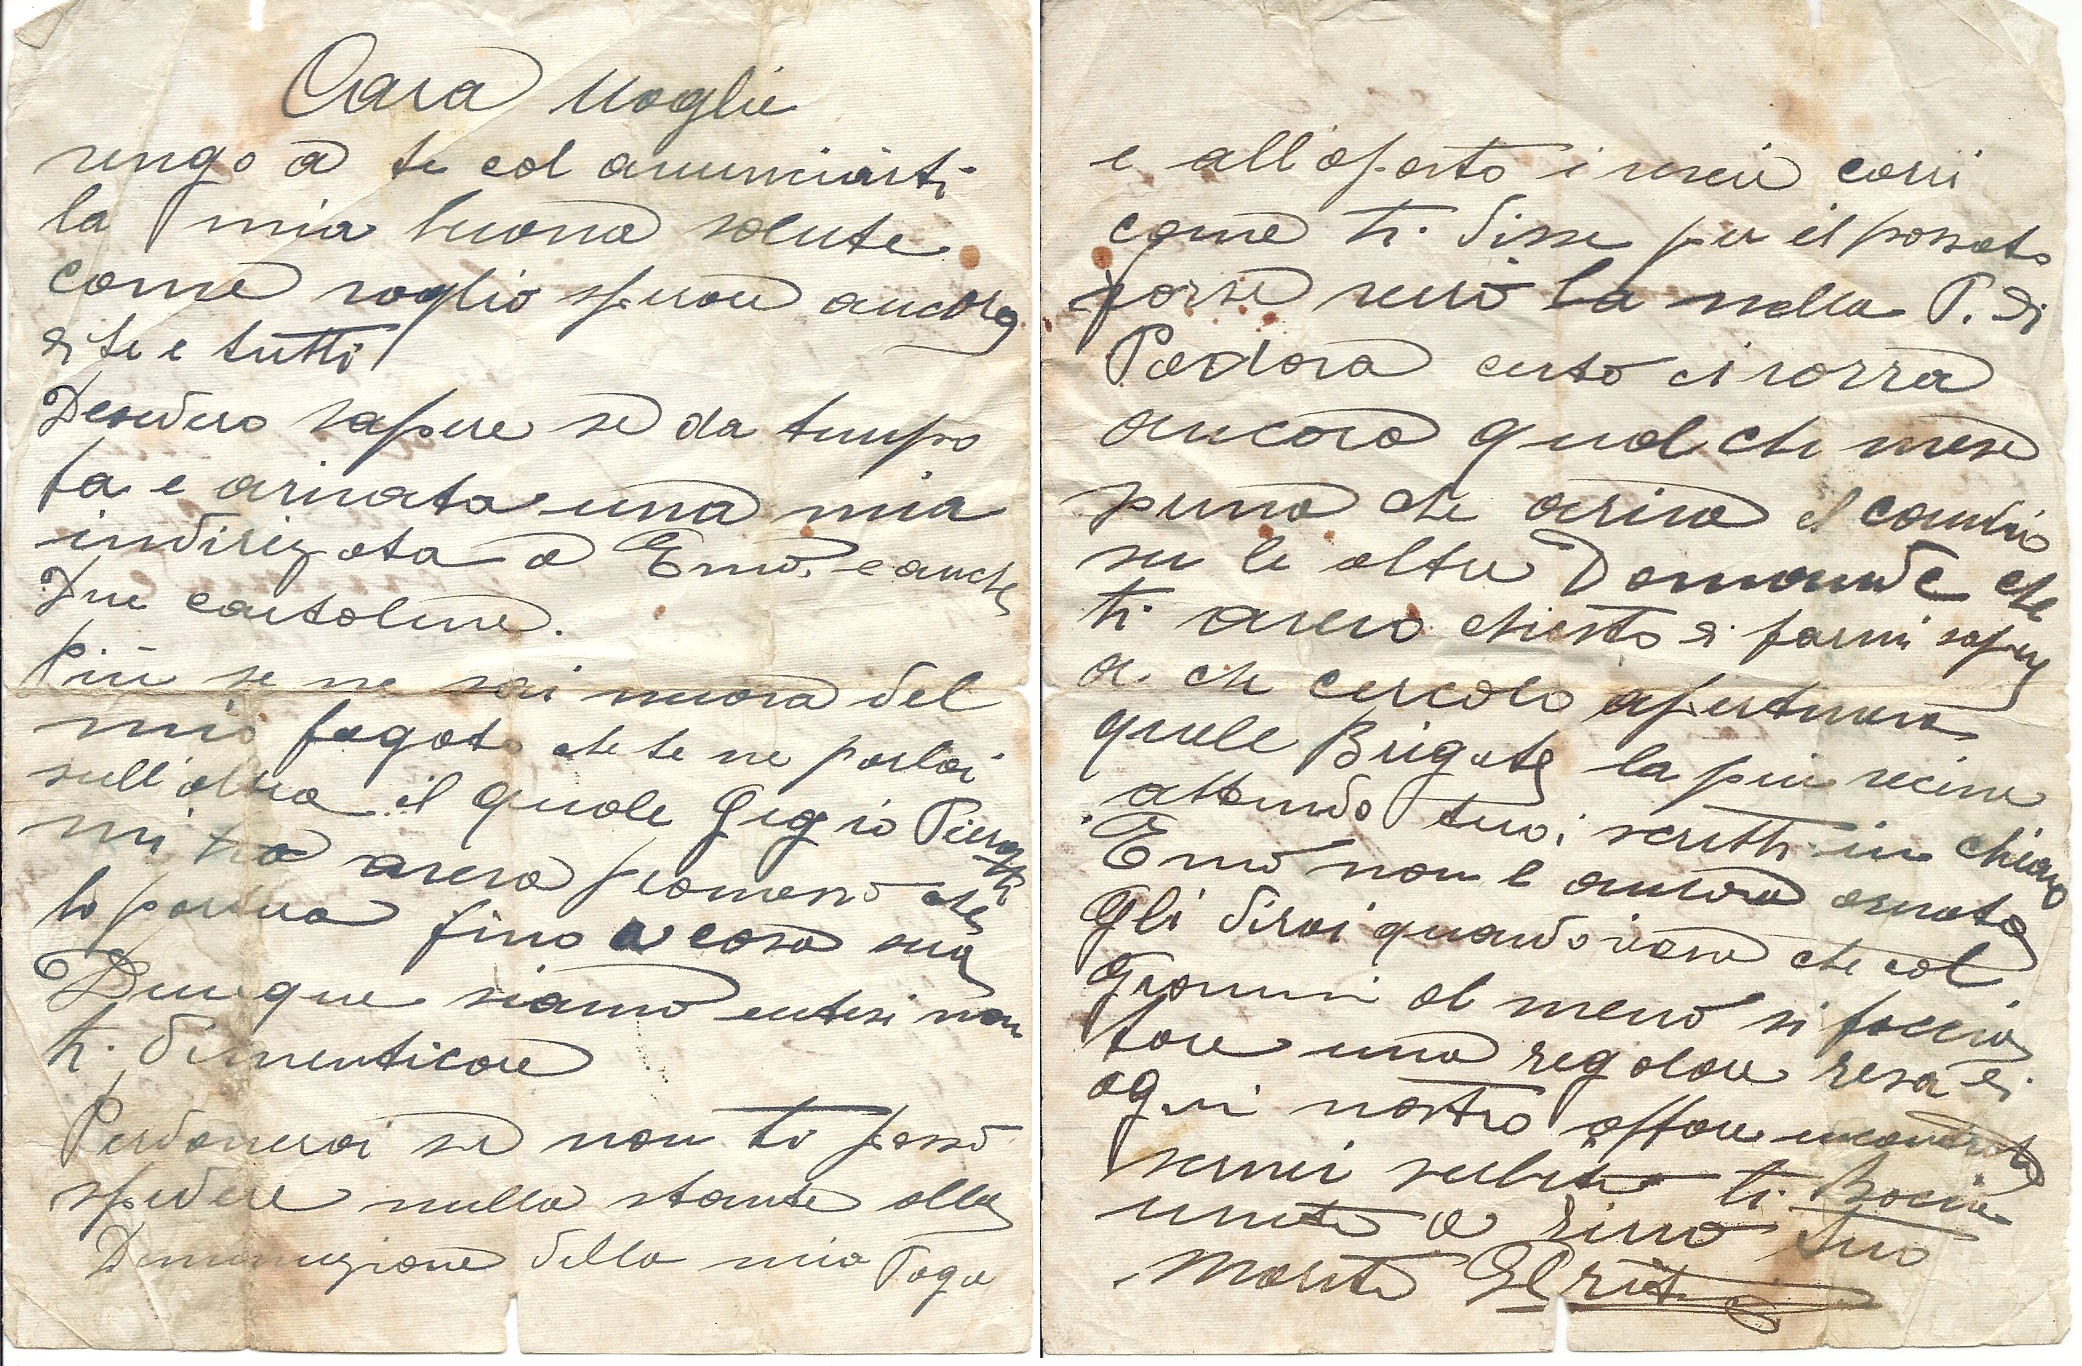 Cara Moglie
vengo a te col anunciarti
la mia buona salute
come voglio sperare ancora
di te e tutti
Desidero sapere se da tempo
fa e arivata una mia
indirizata a Erno, e anche
Due cartoline.
Più se ne sai nuova del
mio fagoto che te ne parlai
sull'altra il quale Gigio
mi aveva promesso che
lo portava fino a casa sua
Dunque siamo intesi non
ti dimenticare
Perdonerai se non ti posso
spedire nulla stante alla
Diminuzione della mia Paga
e all'oposto i viveri cosi
come ti disse per il passato
forse verrò la nella P. di
Padova certo ci vorra
ancora qual che mese
prima che ariva il cambio
su le altre Domande che
ti avevo chiesto di farmi sapere
a che circolo apertiene
quale Brigata la piu vicina
attendo tuoi scritti in chiaro
Erno non è ancora arivato
Gli dirai quando viene che col
al meno si faccia
fare una regolare resa di
ogni nostro affare
scrivi subito ti Bacio
unito a tuo
Marito